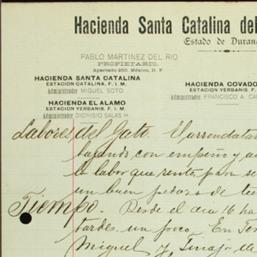 Hacienda Santa Catalina del
Estado de Duran
PABLO MARTINEZ DEL RIO
PROPIETARIO.
Apartado 250. México, D. F.
HACIENDA SANTA CATALINA
ESTACION CATALINA, F. I. M.
Administrador MIGUEL SOTO
HACIENDA COVADO
ESTACION YERBANIS, F.
Administrador FRANCISCO A. CA
HACIENDA EL ALAMO
ESTACION YERBANIS F. I. M.
Administrador DIONISIO SALAS H.
Labores del Gato. El arrendatar
bajando con empeño y a
la labor que renta para se
un buen pedazo de tie
Tiempo. Desde el dia 16 ha
tardes un poco. En Tor
Miguel y Tinajo de